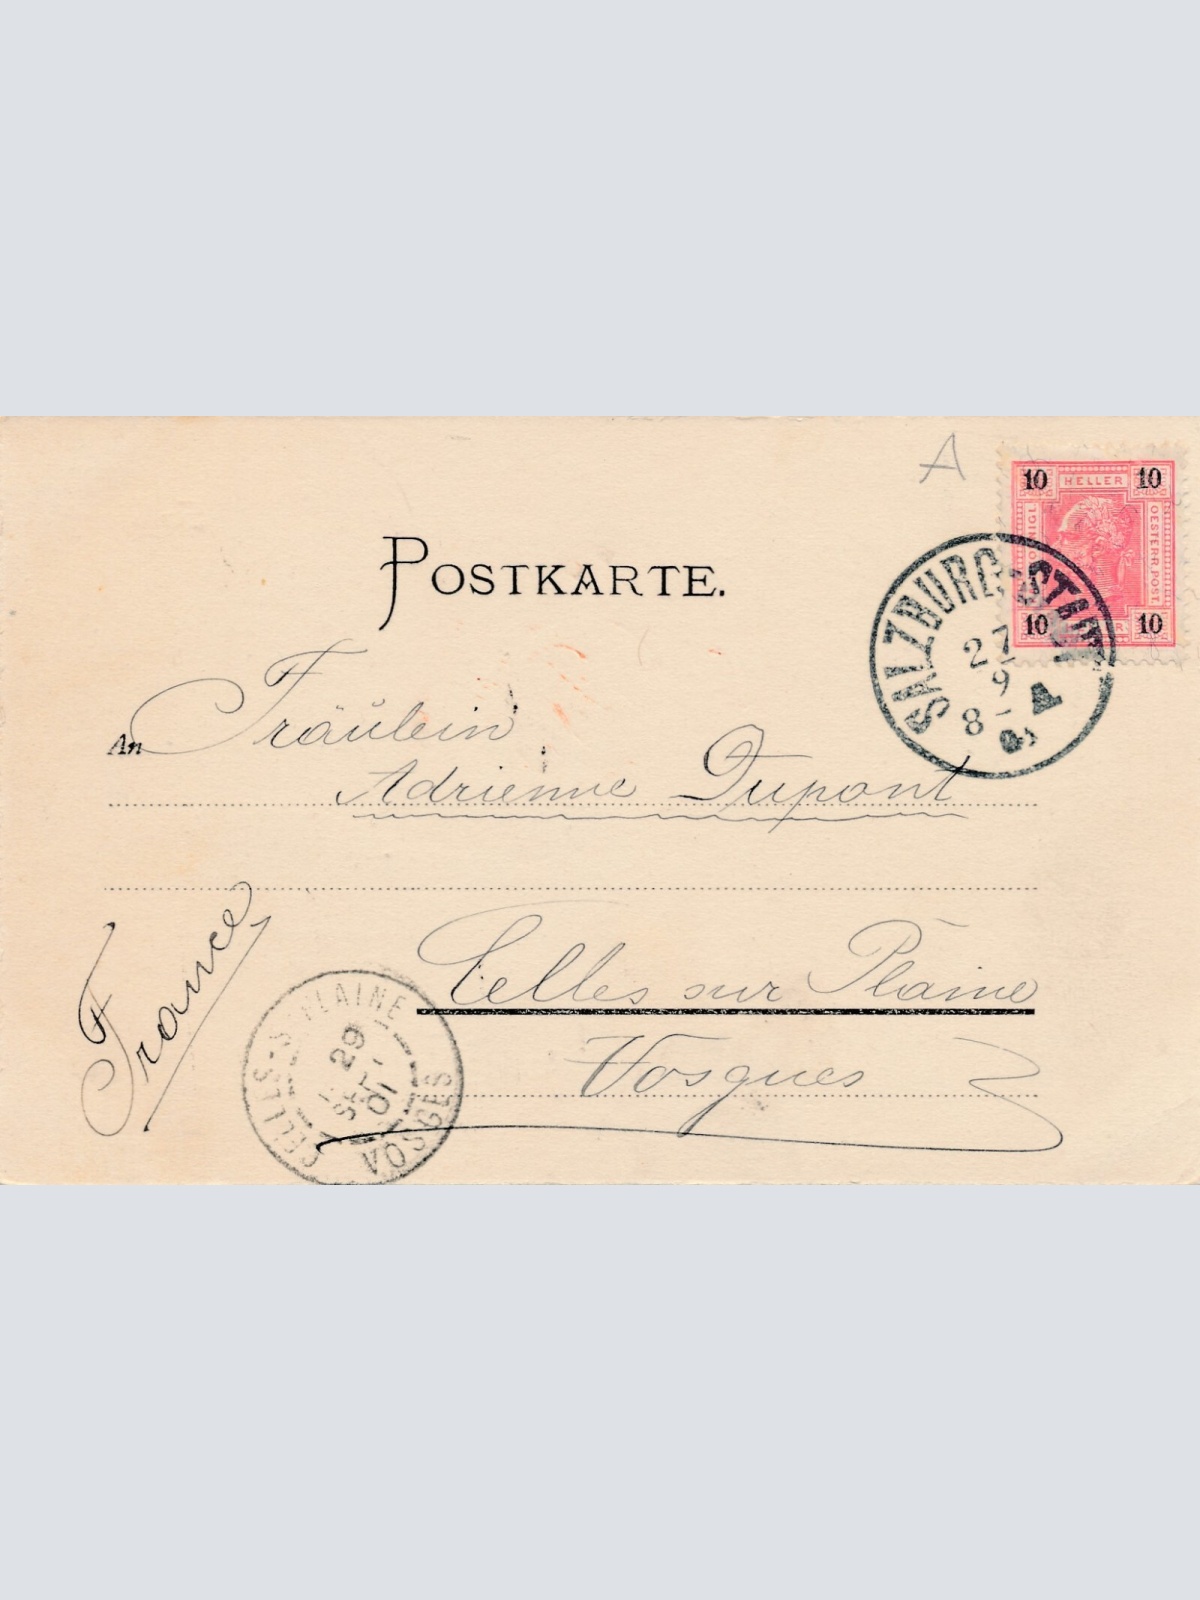 A
10 HELLER 10
OESTERR. POST.
10 10
POSTKARTE.
SALZBURG-STADT
27
9
8-
A
An Fräulein
Adrienne Dupont
France
Celles sur Plaine
Vosges
CELLES-S-PLAINE
29
SEPT
01
VOSGES